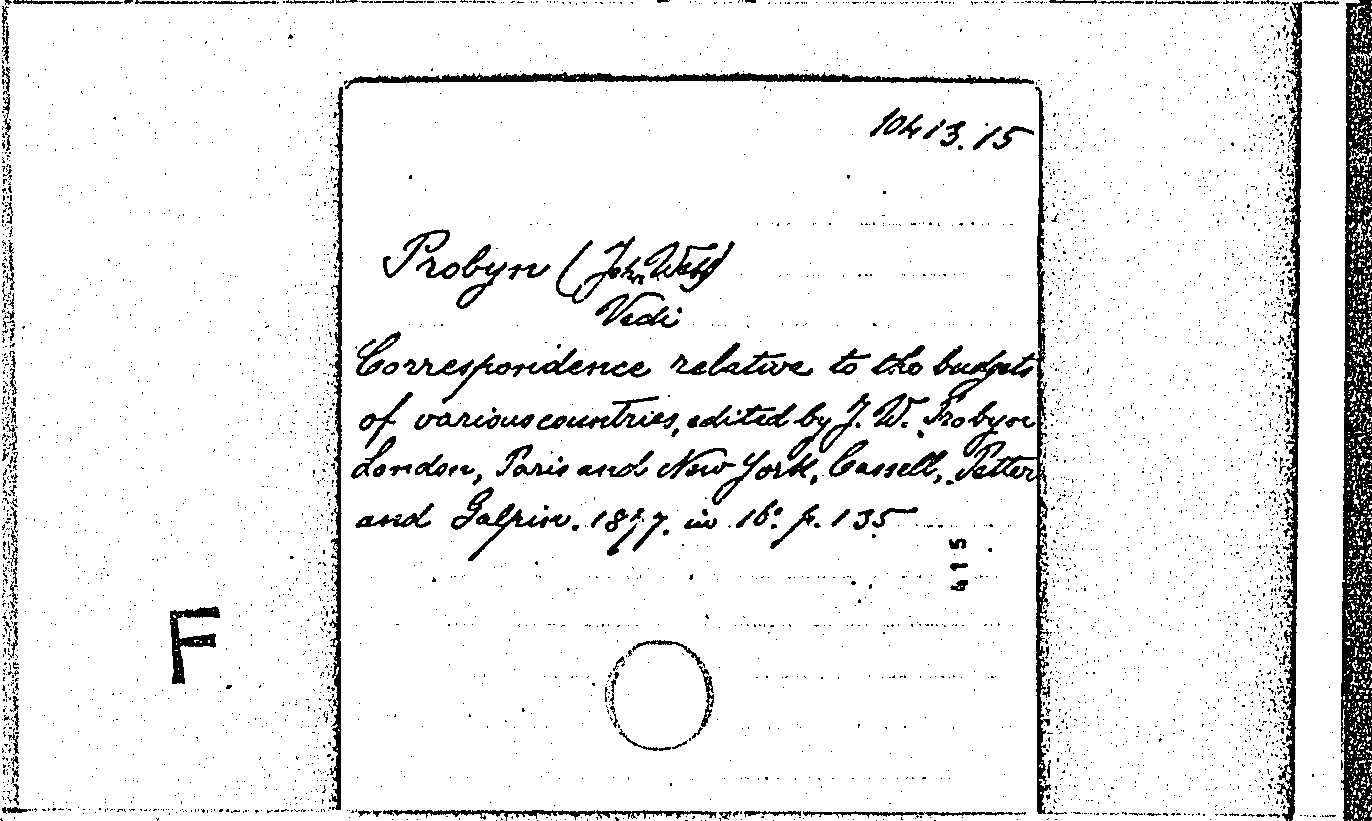 10413.15
Probyn (John Webb)
Vedi
Correspondence relative to the budgets
of various countries, edited by J. W. Probyn
London, Paris and New York, Cassell, Petter
and Galpin. 1877. in 16° p. 135
415
F